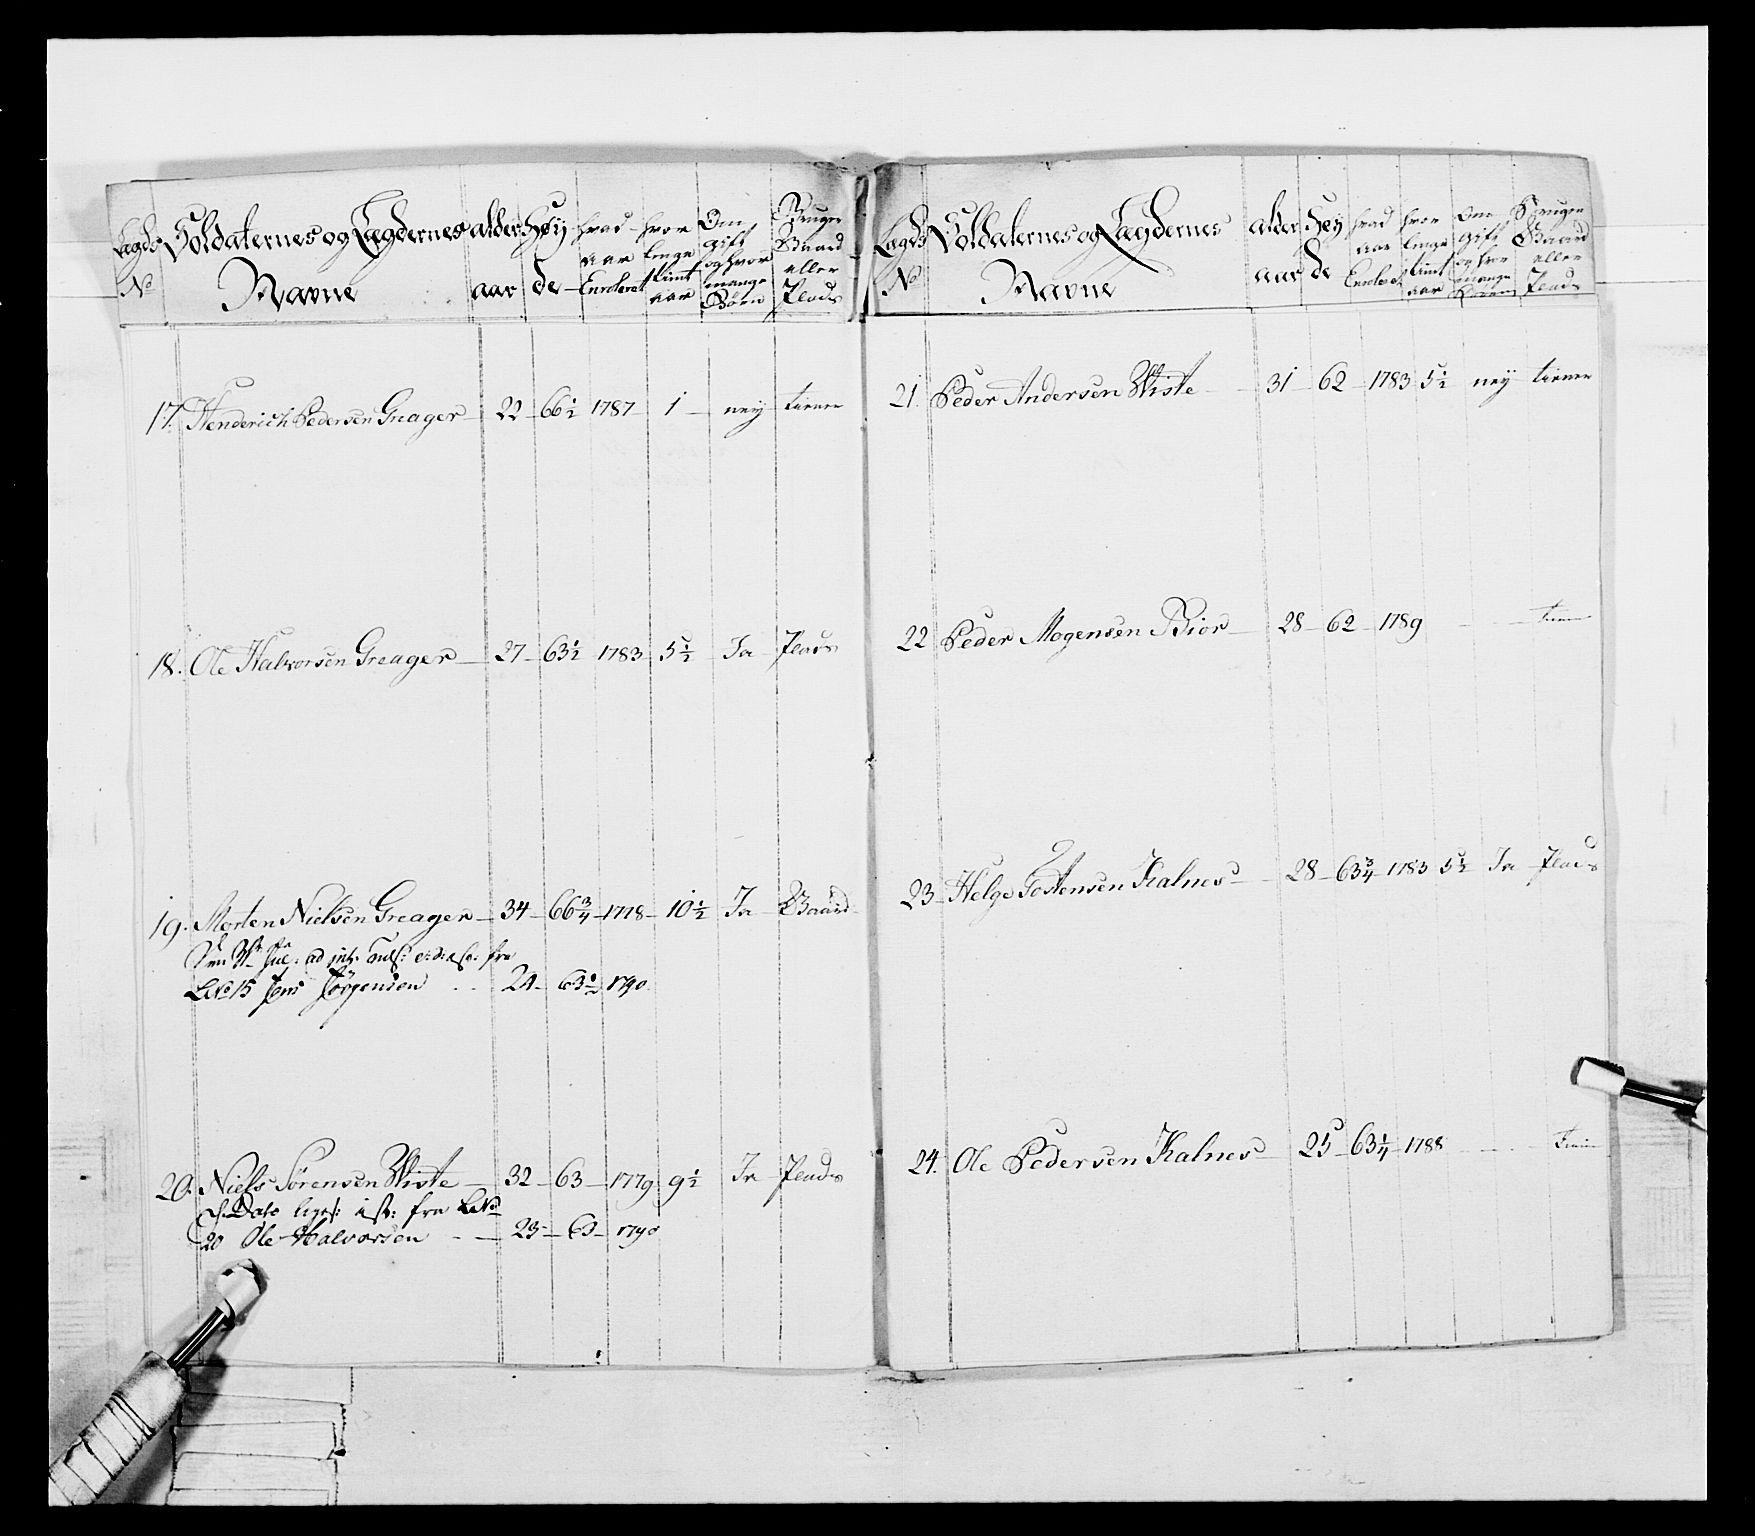 Lægds No
Soldaternes og Lægdernes Navne
alder aar
Høy de
hvad aar Enroleret
hvor lenge tient aar
Om gift og hvor mange Børn
Bruger Gaard eller Plads
17. Henderich Pedersen Greager 22 66½ 1787 1 ney tiener
18. Ole Halvorsen Greager 27 63½ 1783 5½ Ja Plads
19. Morten Nielsen Greager 34 66¾ 1778 10½ Ja Gaard
ad fra
LNo 15 Jens Jørgensen 24 63½ 1790
20. Niels Sørensen Wiste 32 63 1779 9½ Ja Plads
Dato fra LNo
20 Ole Halvorsen 23 63 1790
Lægds No
Soldaternes og Lægdernes Navne
alder aar
Høy de
hvad aar Enroleret
hvor lenge tient aar
Om gift og hvor mange Børn
Bruger Gaard eller Plads
21. Peder Andersen Wiste 31 62 1783 5½ ney tiener
22 Peder Mogensen Bior 28 62 1789 tiener
23 Helge Tostensen Kalnes 28 63¾ 1783 5½ Ja Plads
24. Ole Pedersen Kalnes 25 63¼ 1788 tiener